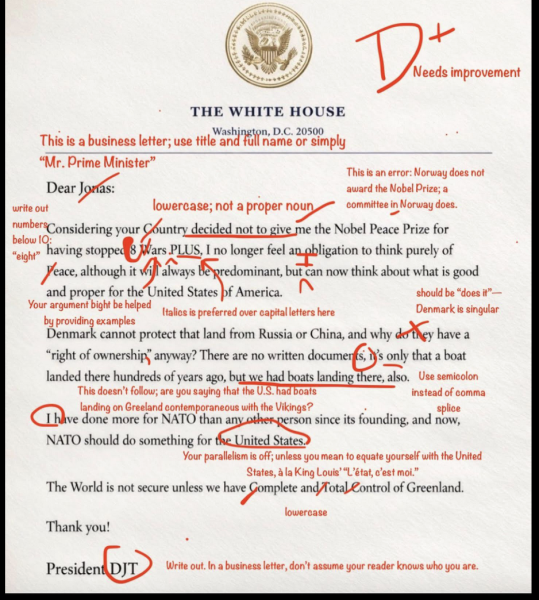 D+
Needs improvement
THE WHITE HOUSE
Washington, D.C. 20500
This is a business letter; use title and full name or simply
“Mr. Prime Minister”
This is an error: Norway does not
award the Nobel Prize; a
committee in Norway does.
Dear Jonas:
lowercase; not a proper noun
write out
numbers
below 10:
"eight"
Considering your Country decided not to give me the Nobel Peace Prize for
having stopped 8 Wars PLUS, I no longer feel an obligation to think purely of
I
Peace, although it will always be predominant, but can now think about what is good
and proper for the United States of America.
should be “does it”—
Denmark is singular
Your argument bight be helped
by providing examples
Italics is preferred over capital letters here
Denmark cannot protect that land from Russia or China, and why do they have a
“right of ownership,” anyway? There are no written documents, it’s only that a boat
landed there hundreds of years ago, but we had boats landing there, also.
Use semicolon
instead of comma
splice
This doesn't follow; are you saying that the U.S. had boats
landing on Greeland contemporaneous with the Vikings?
I have done more for NATO than any other person since its founding, and now,
NATO should do something for the United States.
Your parallelism is off; unless you mean to equate yourself with the United
States, à la King Louis' “L'état, c'est moi.”
The World is not secure unless we have Complete and Total Control of Greenland.
lowercase
Thank you!
President DJT
Write out. In a business letter, don't assume your reader knows who you are.